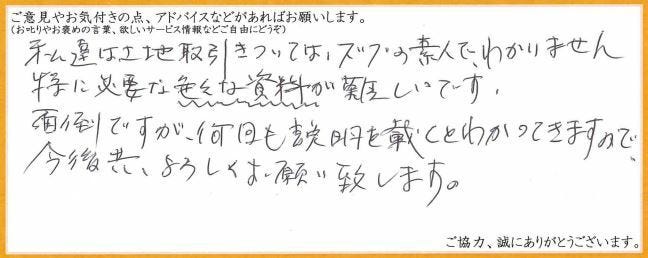 ご意見やお気付きの点、アドバイスなどがあればお願いします。
(お叱りやお褒めの言葉、欲しいサービス情報などご自由にどうぞ)
私達は土地取引きついては、ズブの素人で、わかりません
特に必要な色々な資料が難しいです。
面倒ですが、何回も説明を戴くとわかってきますので、
今後共、よろしくお願い致します。
ご協力、誠にありがとうございます。